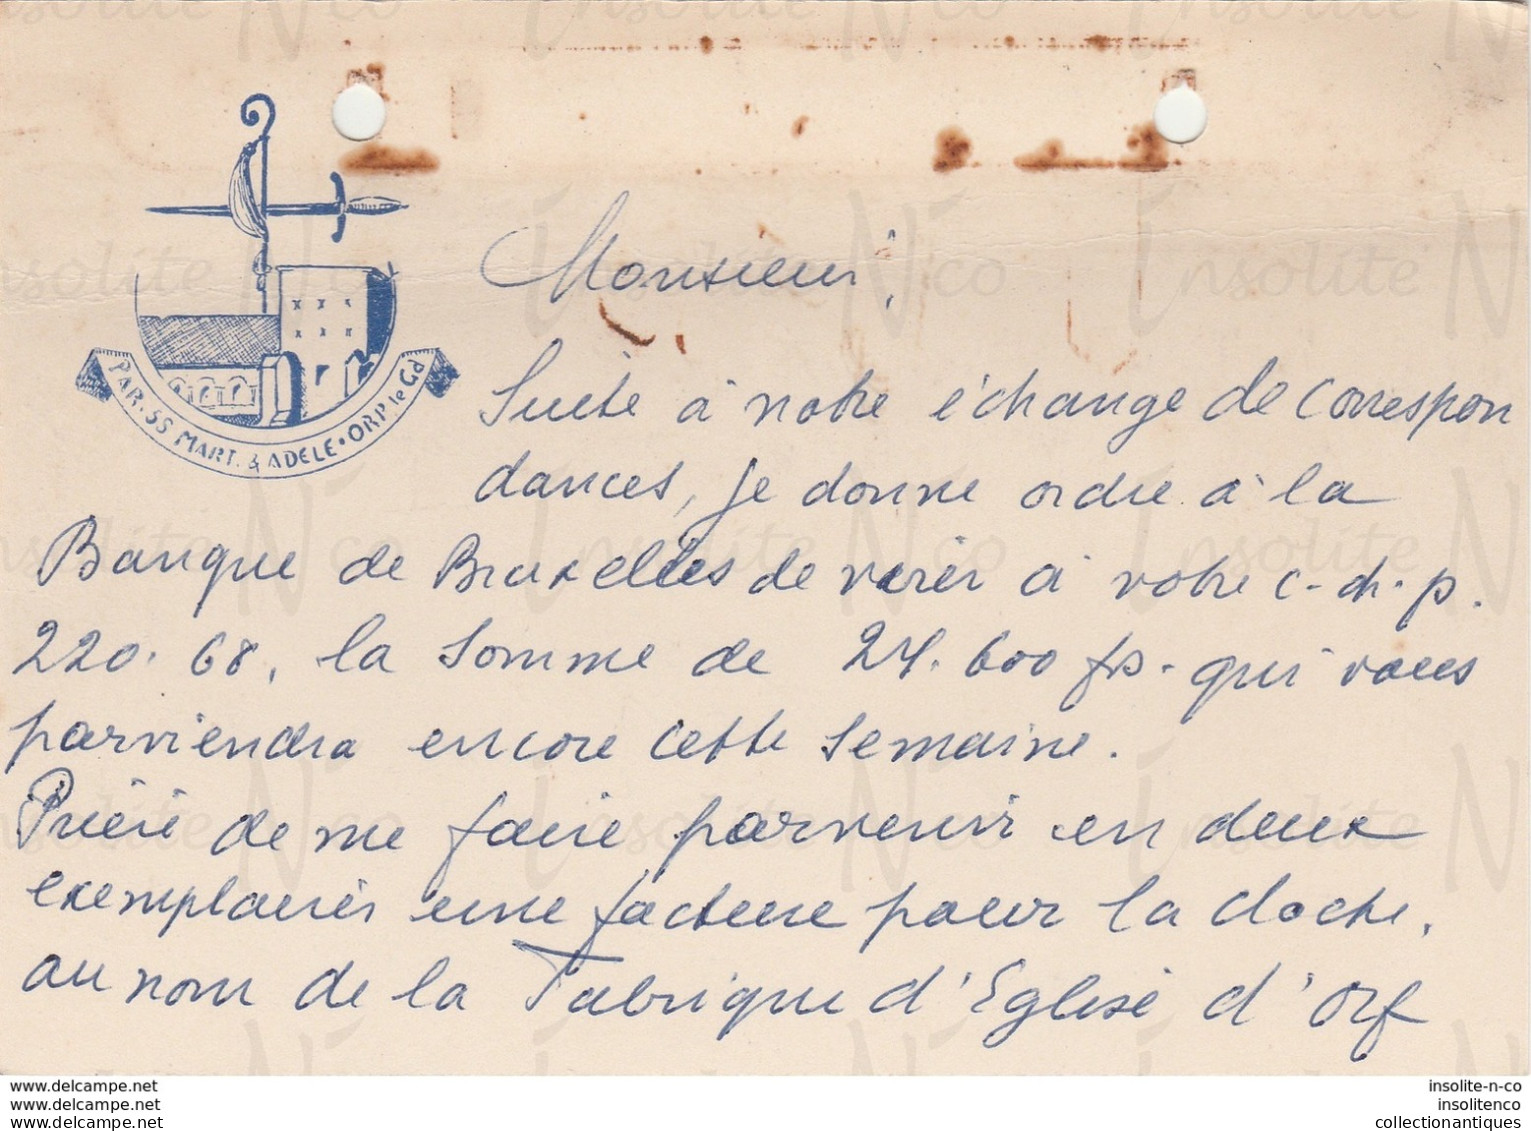 PAR. SS MART. & ADELE • ORP. le Gd
Monsieur,
Suite à notre échange de correspon
dances, je donne ordre à la
Banque de Bruxelles de virer à votre c-ch-p.
220.68, la somme de 24.600 frs. qui vous
parviendra encore cette semaine.
Prière de me faire parvenir en deux
exemplaires une facture pour la cloche,
au nom de la Fabrique d'Eglise d'Orp
www.delcampe.net
www.delcampe.net
www.delcampe.net
insolite-n-co
insolitenco
collectionantiques